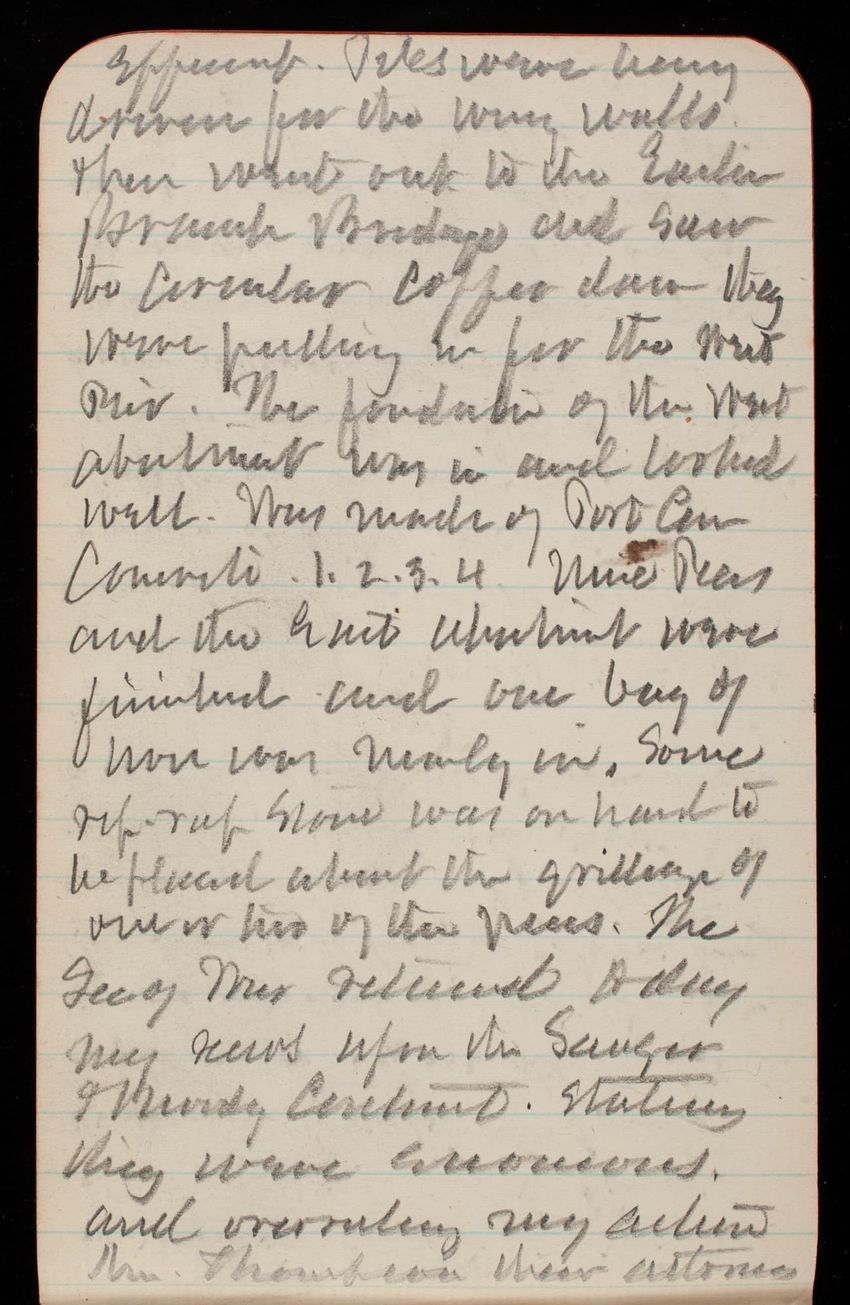 Efficient. Piles were being
driven for the wing walls.
then went out to the Easter
Branch Bridge and saw
the Circular Coffer dam they
were putting in for the West
Pier. The foundation of the West
abutment was in and looked
well. Was made of Port Cem
Concrete. 1. 2. 3. 4 Nine Piers
and the East abutment were
finished and one bay of
iron was nearly in, Some
rip-rap Stone was on hand to
be placed about the grillage of
one or two of the piers. The
Sec of War returned today
my views upon the Sanger
& Moody Contract. Stating
they were enormous.
and overruling my action
Mr. Thompson their attorney